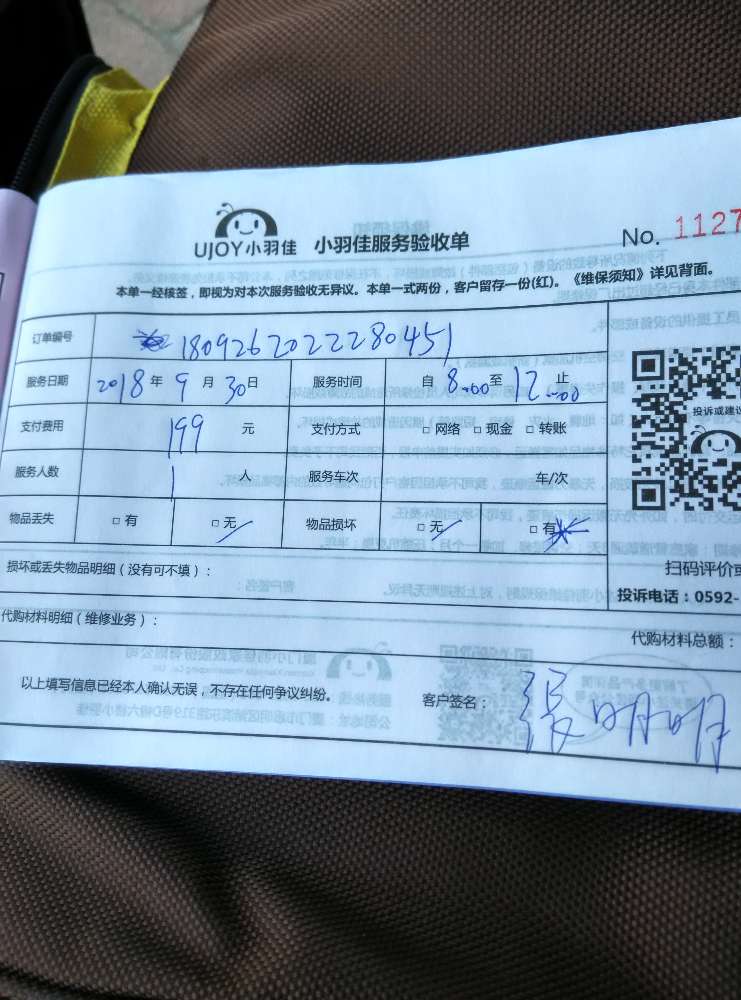 UJOY小羽佳 小羽佳服务验收单 No. 1127
本单一经核签，即视为对本次服务验收无异议。本单一式两份，客户留存一份(红)。《维保须知》详见背面。
订单编号 1809262022280451
服务日期 2018年9月30日 服务时间 自8:00至12:00止
支付费用 199元 支付方式 □网络 □现金 □转账
投诉或建议
服务人数 1人 服务车次 车/次
物品丢失 □有 □无 物品损坏 □无 □有
损坏或丢失物品明细（没有可不填）：
扫码评价或
投诉电话：0592-
代购材料明细（维修业务）：
代购材料总额：
以上填写信息已经本人确认无误，不存在任何争议纠纷。 客户签名：张明明